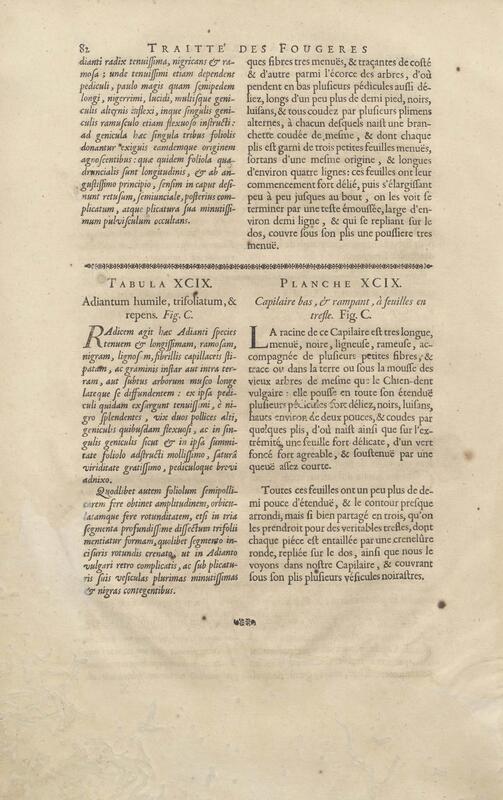 82 TRAITTE' DES FOUGERES
dianti radix tenuissima, nigricans & ra-
mosa; unde tenuissimi etiam dependent
pediculi, paulo magis quam semipedem
longi, nigerrimi, lucidi, multisque geni-
culis alternis inflexi, inque singulis geni-
culis ramusculo etiam flexuoso instructi:
ad genicula hæc singula tribus foliolis
donantur exiguis eandemque originem
agnoscentibus: quæ quidem foliola qua-
druncialis sunt longitudinis, & ab an-
gustissimo principio, sensim in caput desi-
nunt retusum, semiunciale, posterius com-
plicatum, atque plicatura sua minutissi-
mum pulvisculum occultans.
TABULA XCIX.
Adiantum humile, trifoliatum, &
repens. Fig. C.
RAdicem agit hæc Adianti species
tenuem & longissimam, ramosam,
nigram, lignosam, fibrillis capillaceis sti-
patam, ac graminis instar aut intra ter-
ram, aut subtus arborum musco longe
lateque se diffundentem: ex ipsa pedi-
culi quidam exsurgunt tenuissimi, è ni-
gro splendentes, vix duos pollices alti,
geniculis quibusdam flexuosi, ac in sin-
gulis geniculis sicut & in ipsa summi-
tate foliolo adstricti mollissimo, saturâ
viriditate gratissimo, pediculoque brevi
adnixo.
Quodlibet autem foliolum semipolli-
carem fere obtinet amplitudinem, orbicu-
latamque fere rotunditatem, etsi in tria
segmenta profundissime dissectum trifolii
mentiatur formam, quolibet segmento in-
cisuris rotundis crenato, ut in Adianto
vulgari retro complicatis, ac sub plicatu-
ris suis vesiculas plurimas minutissimas
& nigras contegentibus.
ques fibres tres menuës, & traçantes de costé
& d'autre parmi l'écorce des arbres, d'où
pendent en bas plusieurs pédicules aussi dé-
liez, longs d'un peu plus de demi pied, noirs,
luisans, & tous coudez par plusieurs plimens
alternes, à chacun desquels naist une bran-
chette coudée de mesme, & dont chaque
plis est garni de trois petites feuilles menuës,
sortans d'une mesme origine, & longues
d'environ quatre lignes: ces feuilles ont leur
commencement fort délié, puis s'élargissant
peu à peu jusques au bout, on les voit se
terminer par une teste émoussée, large d'en-
viron demi ligne, & qui se repliant sur le
dos, couvre sous son plis une poussiere tres
menuë.
PLANCHE XCIX.
Capilaire bas, & rampant, à feuilles en
trefle. Fig. C.
LA racine de ce Capilaire est tres longue,
menuë, noire, ligneuse, rameuse, ac-
compagnée de plusieurs petites fibres, &
trace où dans la terre ou sous la mousse des
vieux arbres de mesme que le Chien-dent
vulgaire: elle pousse en toute son étenduë
plusieurs pédicules fort déliez, noirs, luisans,
hauts environ de deux pouces, & coudes par
quelques plis, d'où naist ainsi que sur l'ex-
trémité, une feuille fort délicate, d'un vert
foncé fort agreable, & soustenuë par une
queuë assez courte.
Toutes ces feuilles ont un peu plus de de-
mi pouce d'étenduë, & le contour presque
arrondi, mais si bien partagé en trois, qu'on
les prendroit pour des veritables trefles, dont
chaque piéce est entaillée par une crenelûre
ronde, repliée sur le dos, ainsi que nous le
voyons dans nostre Capilaire, & couvrant
sous son plis plusieurs vésicules noirastres.